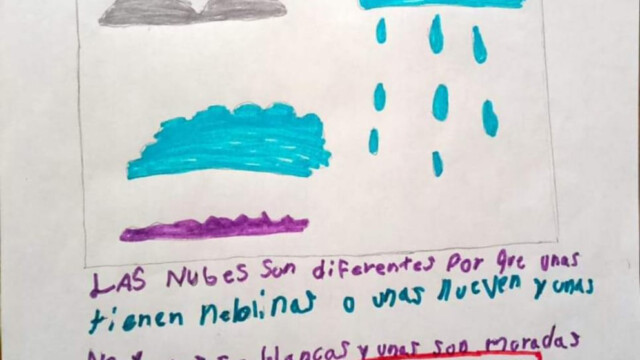 LAS NUBES Son diferentes Por que unas
tienen neblinas o unas llueven y unas
blancas y unas son moradas